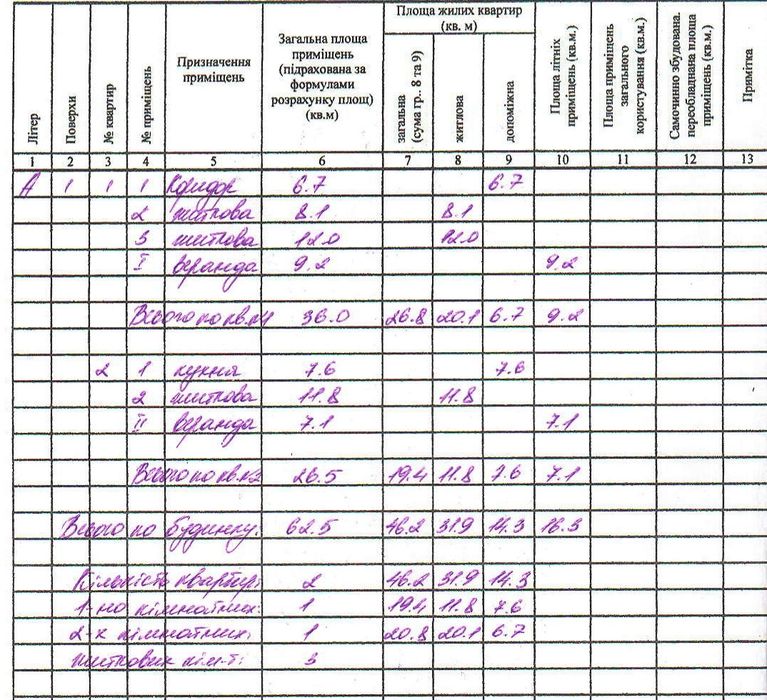 Літер
Поверхи
№ квартир
№ приміщень
Призначення приміщень
Загальна площа приміщень (підрахована за формулами розрахунку площ) (кв.м)
Площа жилих квартир (кв. м)
загальна (сума гр.. 8 та 9)
житлова
допоміжна
Площа літніх приміщень (кв.м.)
Площа приміщень загального користування (кв.м.)
Самочинно збудована. переобладнана площа приміщень (кв.м.)
Примітка
1 2 3 4 5 6 7 8 9 10 11 12 13
А 1 1 1 Коридор 6.7 6.7
2 житлова 8.1 8.1
3 житлова 12.0 12.0
I веранда 9.2 9.2
Всього по кв.№1 36.0 26.8 20.1 6.7 9.2
2 1 кухня 7.6 7.6
2 житлова 11.8 11.8
II веранда 7.1 7.1
Всього по кв.№2 26.5 19.4 11.8 7.6 7.1
Всього по будинку: 62.5 46.2 31.9 14.3 16.3
Кількість квартир: 2 46.2 31.9 14.3
1-но кімнатних: 1 19.4 11.8 7.6
2-х кімнатних: 1 20.8 20.1 6.7
житлових кім-т: 3